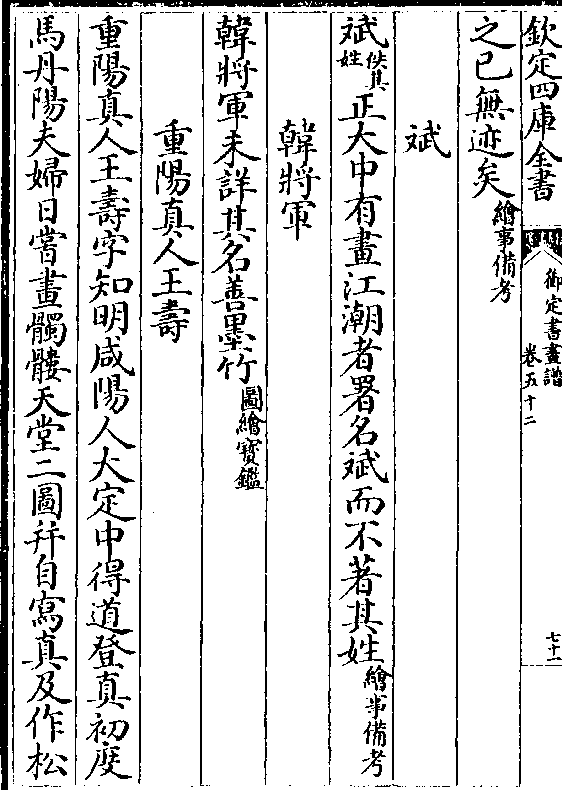 欽定四庫全書
御定書畫譜
卷五十二
七十一
之已無迹矣繪事備考
斌
斌佚其姓正大中有畫江潮者署名斌而不著其姓繪事備考
韓將軍
韓將軍未詳其名善墨竹圖繪寶鑑
重陽真人王壽
重陽真人王壽字知明咸陽人大定中得道登真初度
馬丹陽夫婦日嘗畫髑髏天堂二圖并自寫真及作松